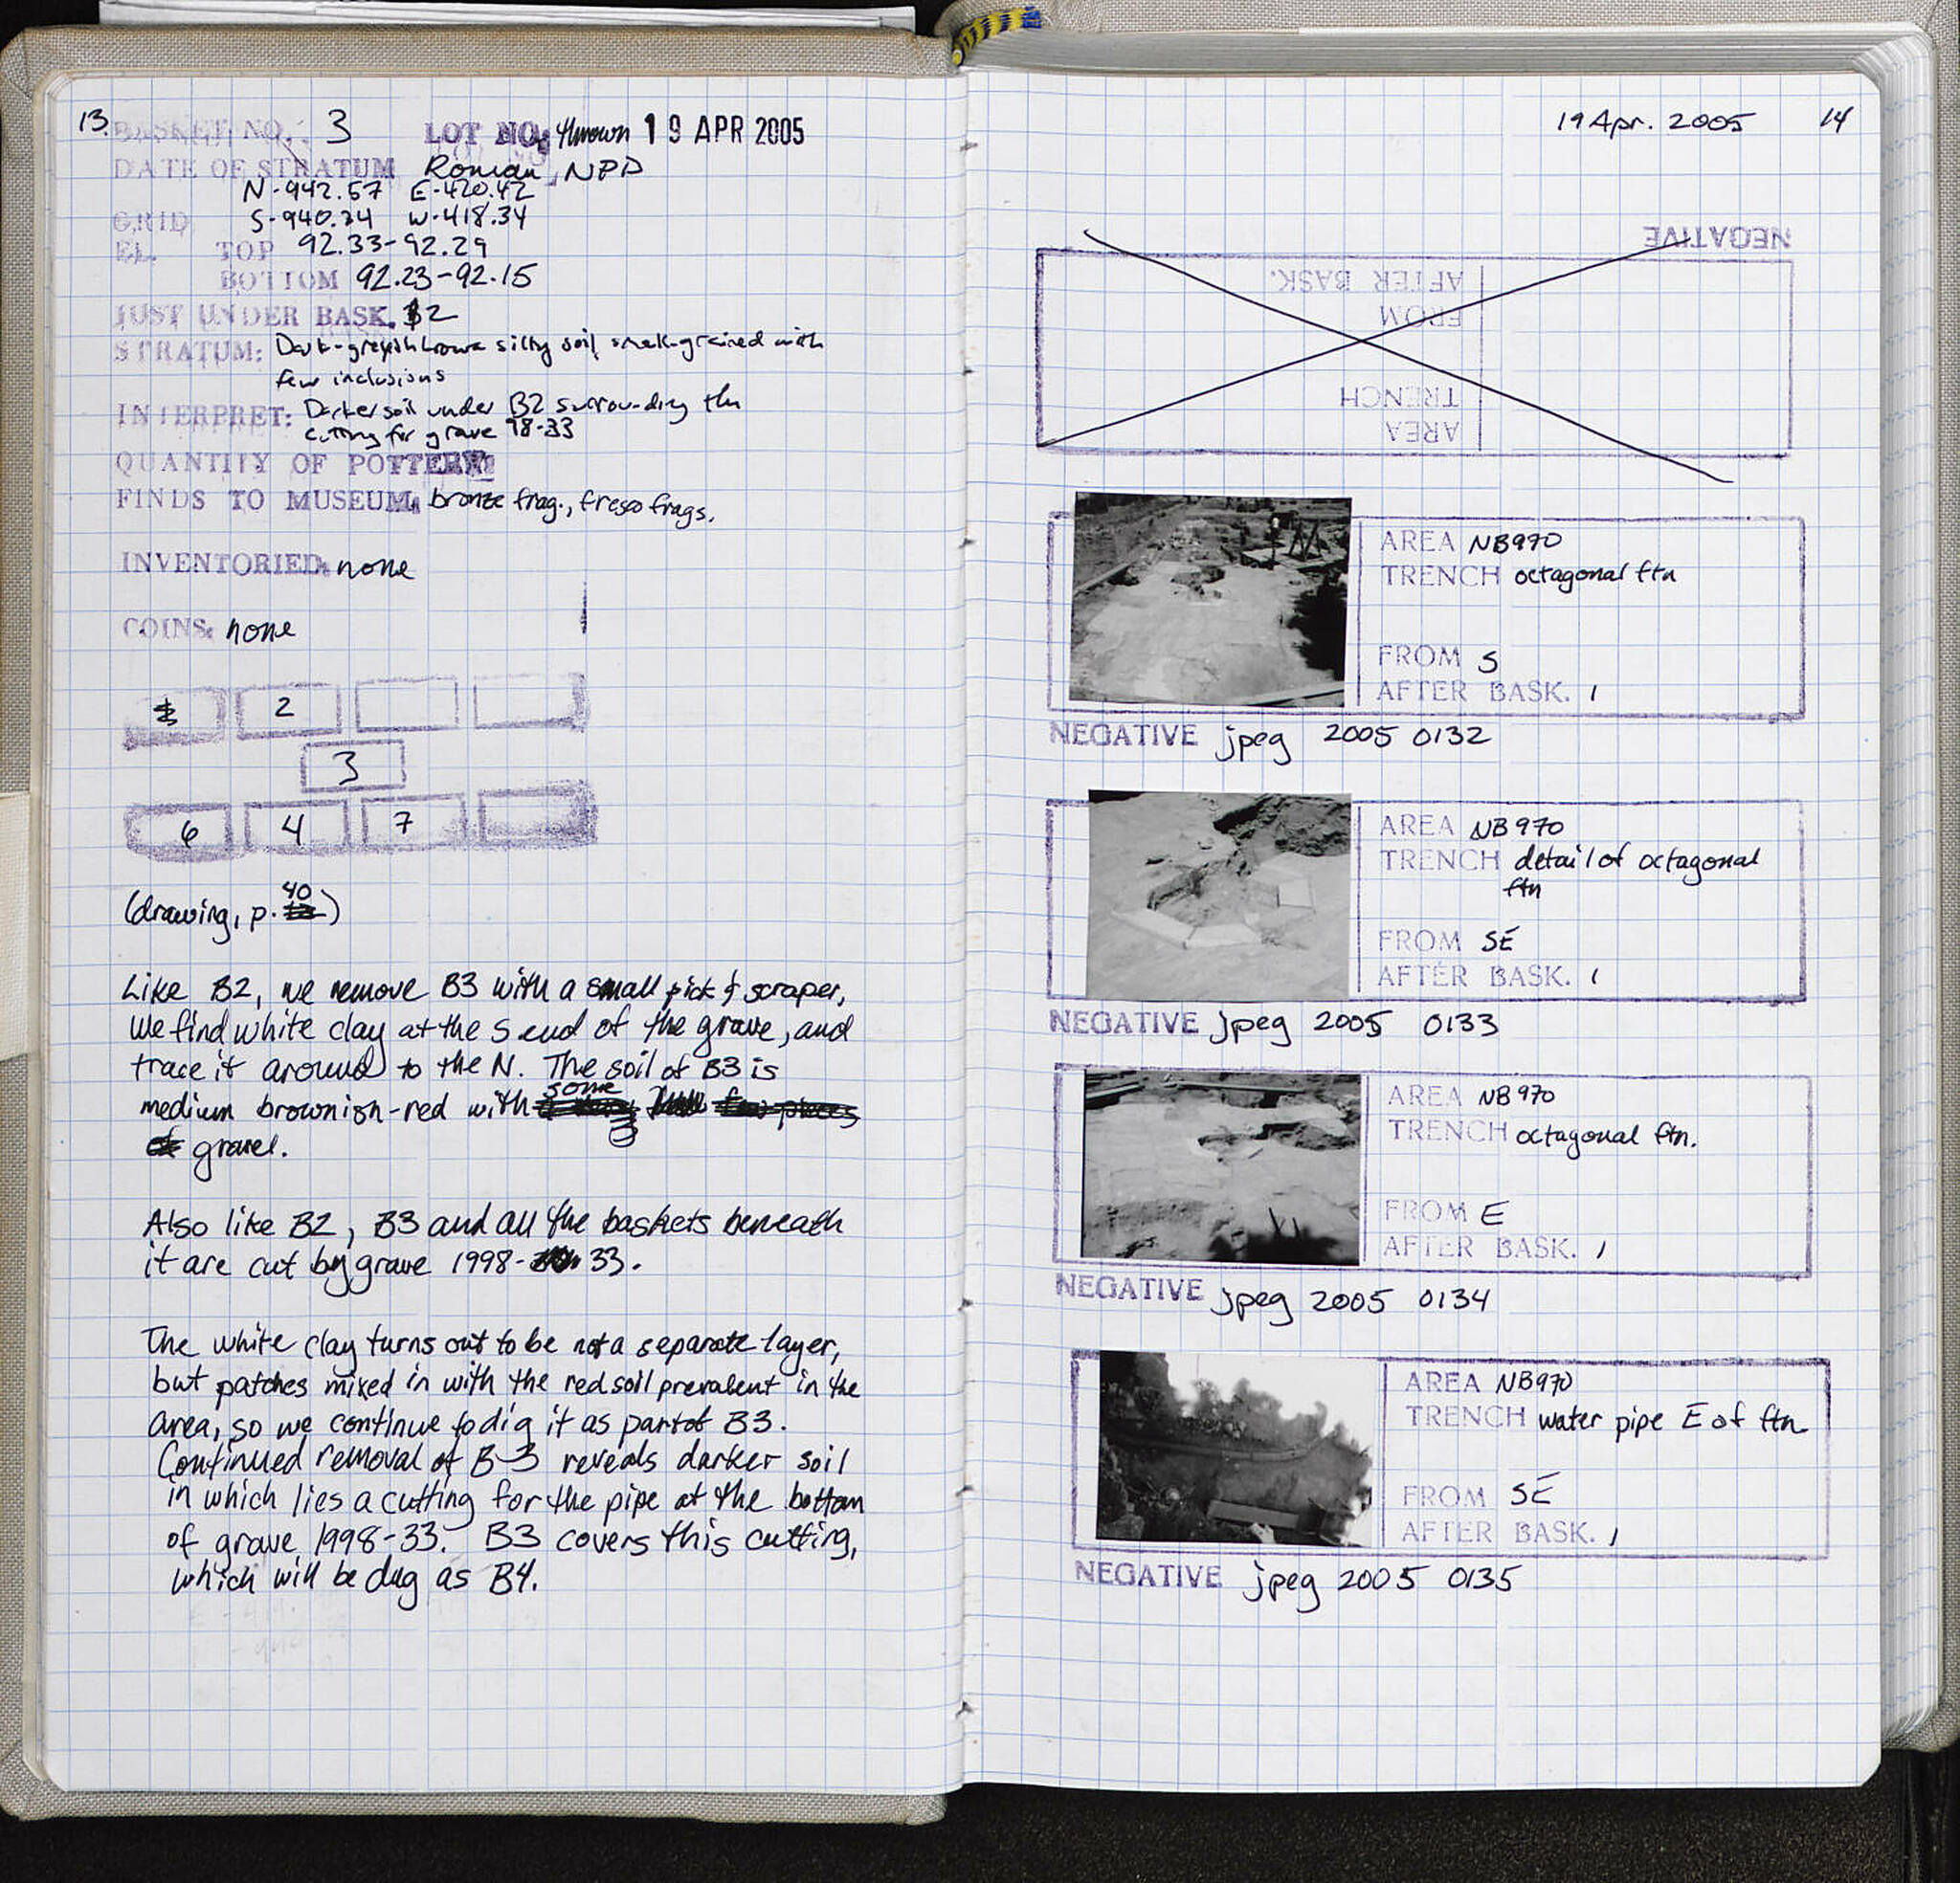 13.
BASKET NO. 3 LOT NO. thrown 19 APR 2005
DATE OF STRATUM Roman, NPD
N-942.57 E-420.42
GRID S-940.24 W-418.34
EL. TOP 92.33-92.29
BOTTOM 92.23-92.15
JUST UNDER BASK. B2
STRATUM: Dark-greyish brown silty soil, small-grained with
few inclusions
INTERPRET: Darker soil under B2 surrounding the
cutting for grave 98-33
QUANTITY OF POTTERY:
FINDS TO MUSEUM: bronze frag., fresco frags.
INVENTORIED: none
COINS: none
2
3
6 4 7
(drawing, p. 40)
Like B2, we remove B3 with a small pick & scraper,
we find white clay at the S end of the grave, and
trace it around to the N. The soil of B3 is
medium brownish-red with some
gravel.
Also like B2, B3 and all the baskets beneath
it are cut by grave 1998-33.
The white clay turns out to be not a separate layer,
but patches mixed in with the red soil prevalent in the
area, so we continue to dig it as part of B3.
Continued removal of B-3 reveals darker soil
in which lies a cutting for the pipe at the bottom
of grave 1998-33. B3 covers this cutting,
which will be dug as B4.
19 Apr. 2005 14
NEGATIVE
AFTER BASK.
FROM
TRENCH
AREA
AREA NB970
TRENCH octagonal ftn
FROM S
AFTER BASK. 1
NEGATIVE jpeg 2005 0132
AREA NB970
TRENCH detail of octagonal
ftn
FROM SE
AFTER BASK. 1
NEGATIVE jpeg 2005 0133
AREA NB970
TRENCH octagonal ftn.
FROM E
AFTER BASK. 1
NEGATIVE jpeg 2005 0134
AREA NB970
TRENCH water pipe E of ftn
FROM SE
AFTER BASK. 1
NEGATIVE jpeg 2005 0135